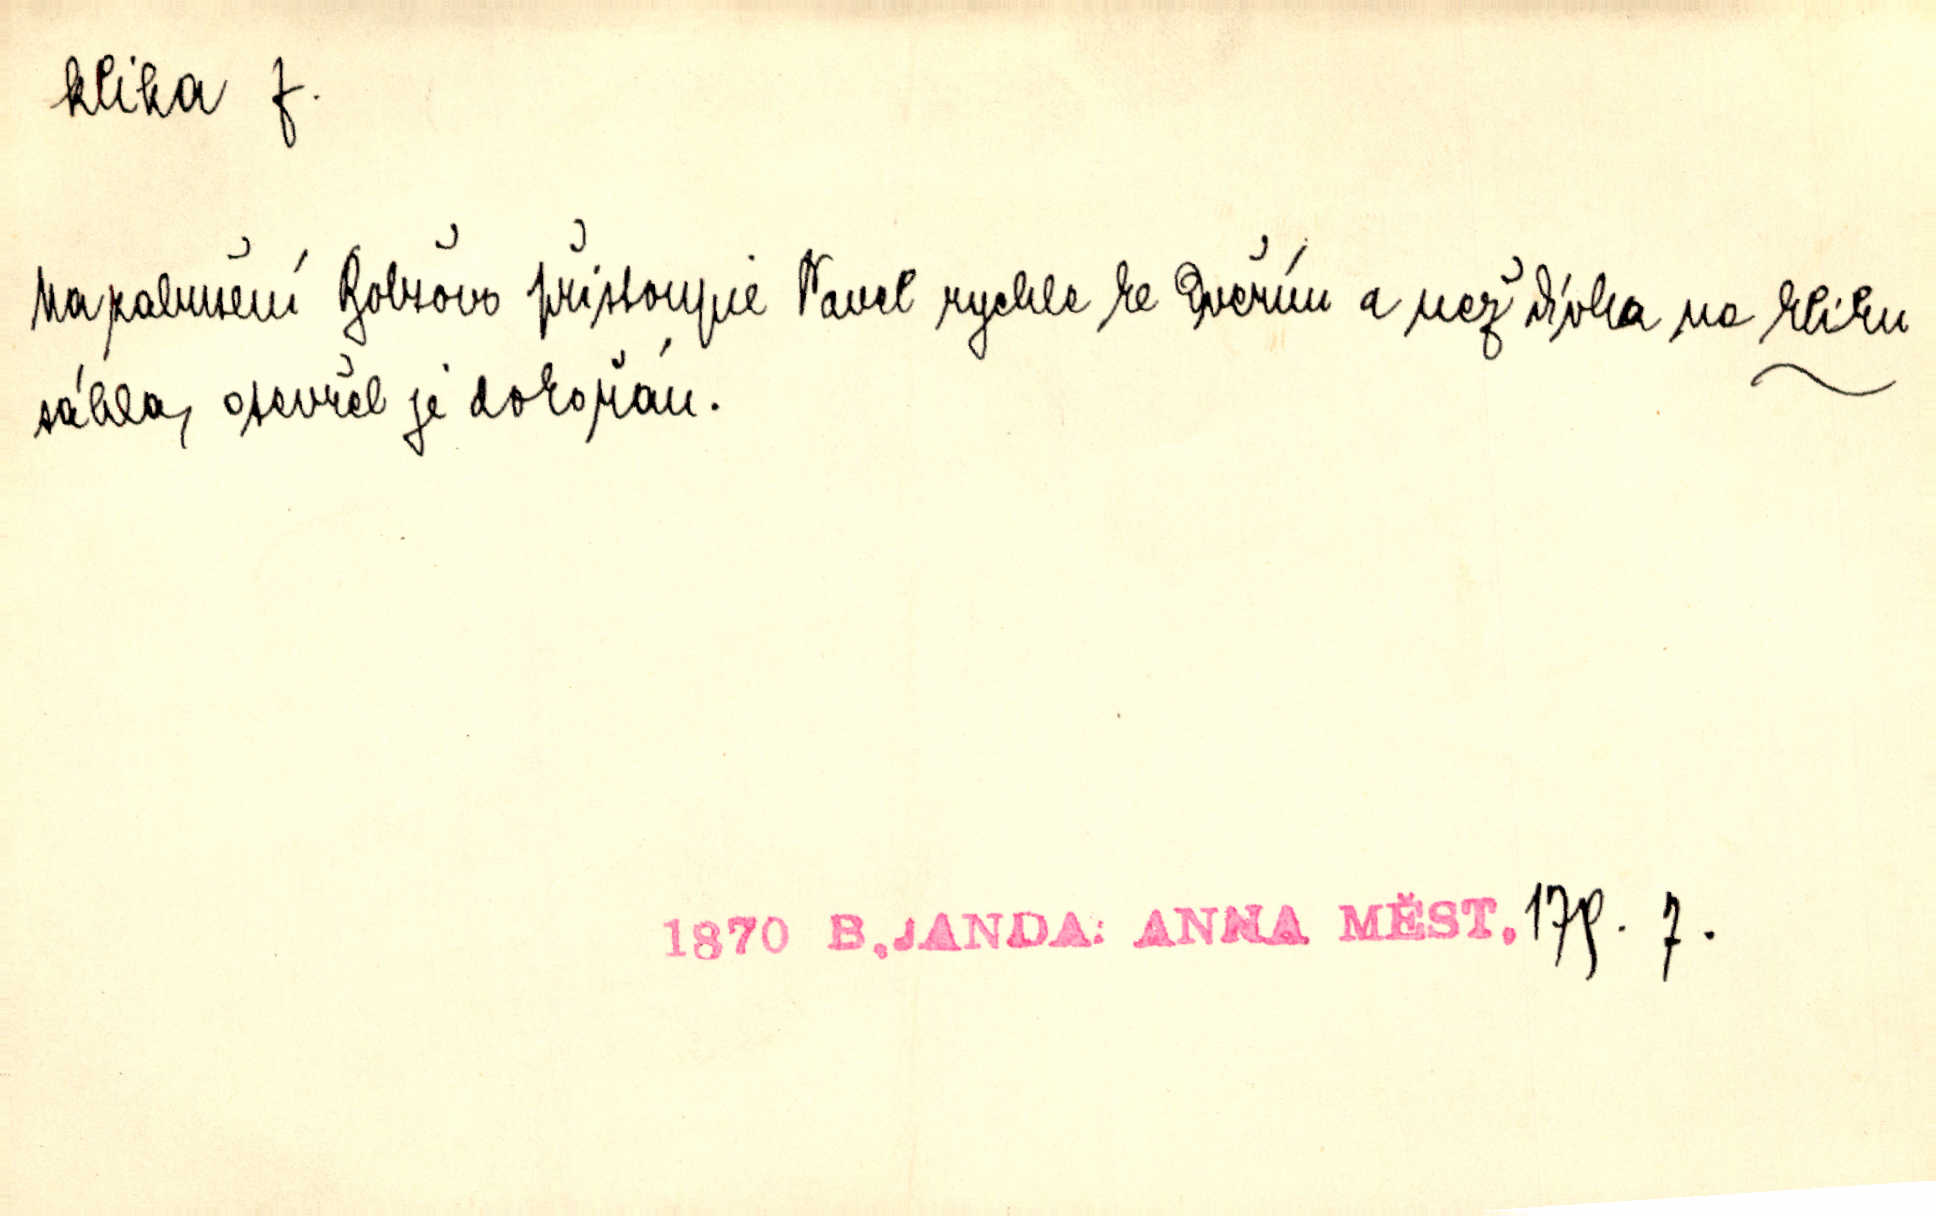 klika f.
Na pokrušení Bobšovo přistoupil Pavel rychle ke dveřím a než dívka na kliku
sáhla, otevřel je dokořán.
1870 B. JANDA: ANNA MĚST. 179. 7.